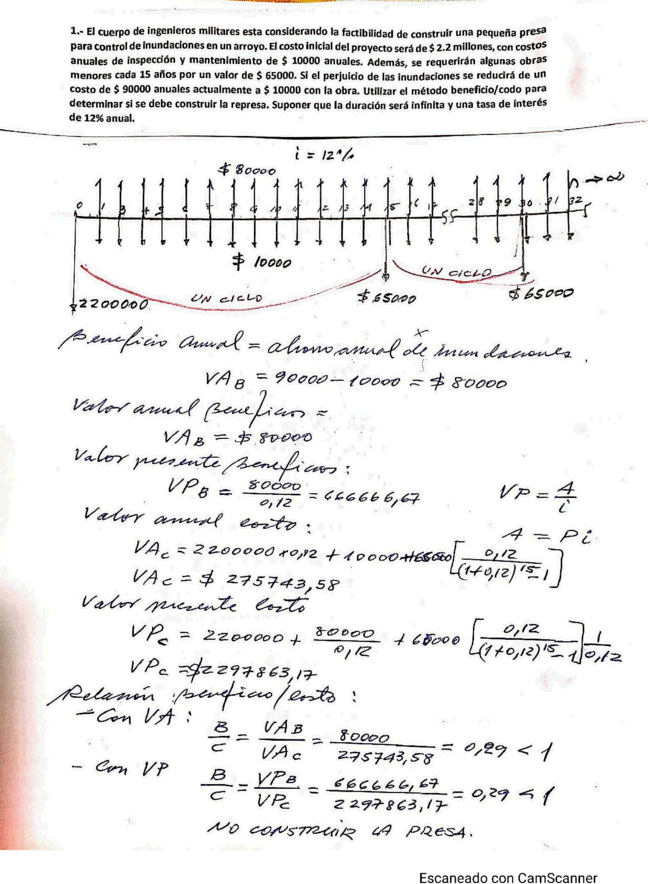 1.- El cuerpo de ingenieros militares esta considerando la factibilidad de construir una pequeña presa
para control de inundaciones en un arroyo. El costo inicial del proyecto será de $ 2.2 millones, con costos
anuales de inspección y mantenimiento de $ 10000 anuales. Además, se requerirán algunas obras
menores cada 15 años por un valor de $ 65000. Si el perjuicio de las inundaciones se reducirá de un
costo de $ 90000 anuales actualmente a $ 10000 con la obra. Utilizar el método beneficio/codo para
determinar si se debe construir la represa. Suponer que la duración será infinita y una tasa de interés
de 12% anual.
i = 12%
$ 80000
n → ∞
0 1 3 4 5 6 7 8 9 10 11 12 13 14 15 16 17 28 29 30 31 32
$ 10000
UN CICLO
UN CICLO
2200000
$ 65000
$ 65000
Beneficio anual = ahorro anual de inundaciones.
VA_B = 90000 - 10000 = $ 80000
Valor anual Beneficios =
VA_B = $ 80000
Valor presente Beneficios:
VP_B = 80000/0,12 = 666666,67
VP = A/i
Valor anual costo:
A = Pi
VA_c = 2200000 x 0,12 + 10000 + 65000 [0,12/((1+0,12)^15 - 1)]
VA_c = $ 275743,58
Valor presente Costo
VP_c = 2200000 + 80000/0,12 + 65000 [0,12/((1+0,12)^15 - 1)] 1/0,12
VP_c = $2297863,17
Relasión beneficio/costo:
- Con VA:
B/C = VAB/VAc = 80000/275743,58 = 0,29 < 1
- Con VP
B/C = VPB/VPc = 666666,67/2297863,17 = 0,29 < 1
NO CONSTRUIR LA PRESA.
Escaneado con CamScanner